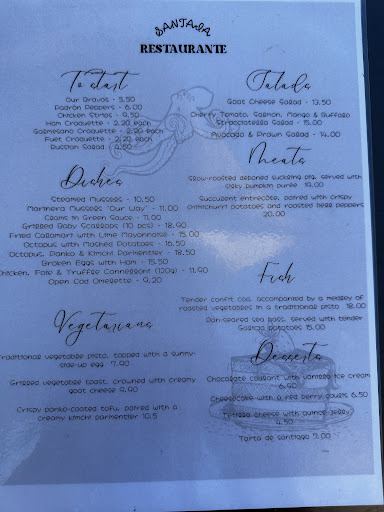 SANTA SA
RESTAURANTE
To start
Our Bravas - 5.50
Padrón Peppers - 6.00
Chicken Strips - 9.50
Ham Croquette - 2.20 each
Gamesano Croquette - 2.20 each
Fuet Croquette - 2.20 each
Russian Salad - 6.50
Dishes
Steamed Mussels - 10.50
Marinera Mussels "Our Way" - 11.00
Clams in Green Sauce - 11.00
Grilled Baby Scallops (10 pcs) - 18.90
Fried Calamari with Lime Mayonnaise - 15.00
Octopus with Mashed Potatoes - 16.50
Octopus, Panko & Kimchi Parmentier - 18.50
Broken Eggs with Ham - 15.50
Chicken, Foie & Truffle Cannelloni (120g) - 11.90
Open Cod Omelette - 9.20
Vegetarians
Traditional vegetable pisto, topped with a sunny-
side-up egg 7.90
Grilled vegetable toast, crowned with creamy
goat cheese 9.90
Crispy panko-coated tofu, paired with a
creamy kimchi parmentier 10.5
Salads
Goat Cheese Salad - 13.50
Cherry Tomato, Salmon, Mango & Buffalo
Stracciatella Salad - 15.00
Avocado & Prawn Salad - 14.00
Meats
Slow-roasted deboned suckling pig, served with
silky pumpkin purée 19.00
Succulent entrecôte, paired with crispy
chimichurri potatoes and roasted Piquillo peppers
20.00
Fish
Tender confit cod, accompanied by a medley of
roasted vegetables in a traditional pisto 18.00
Pan-seared sea bass, served with tender
Galicia potatoes 15.00
Desserts
Chocolate coulant with vanilla ice cream
6.90
Cheesecake with a red berry coulis 6.50
Tetilla cheese with quince jelly
4.50
Tarta de santiago 7.00